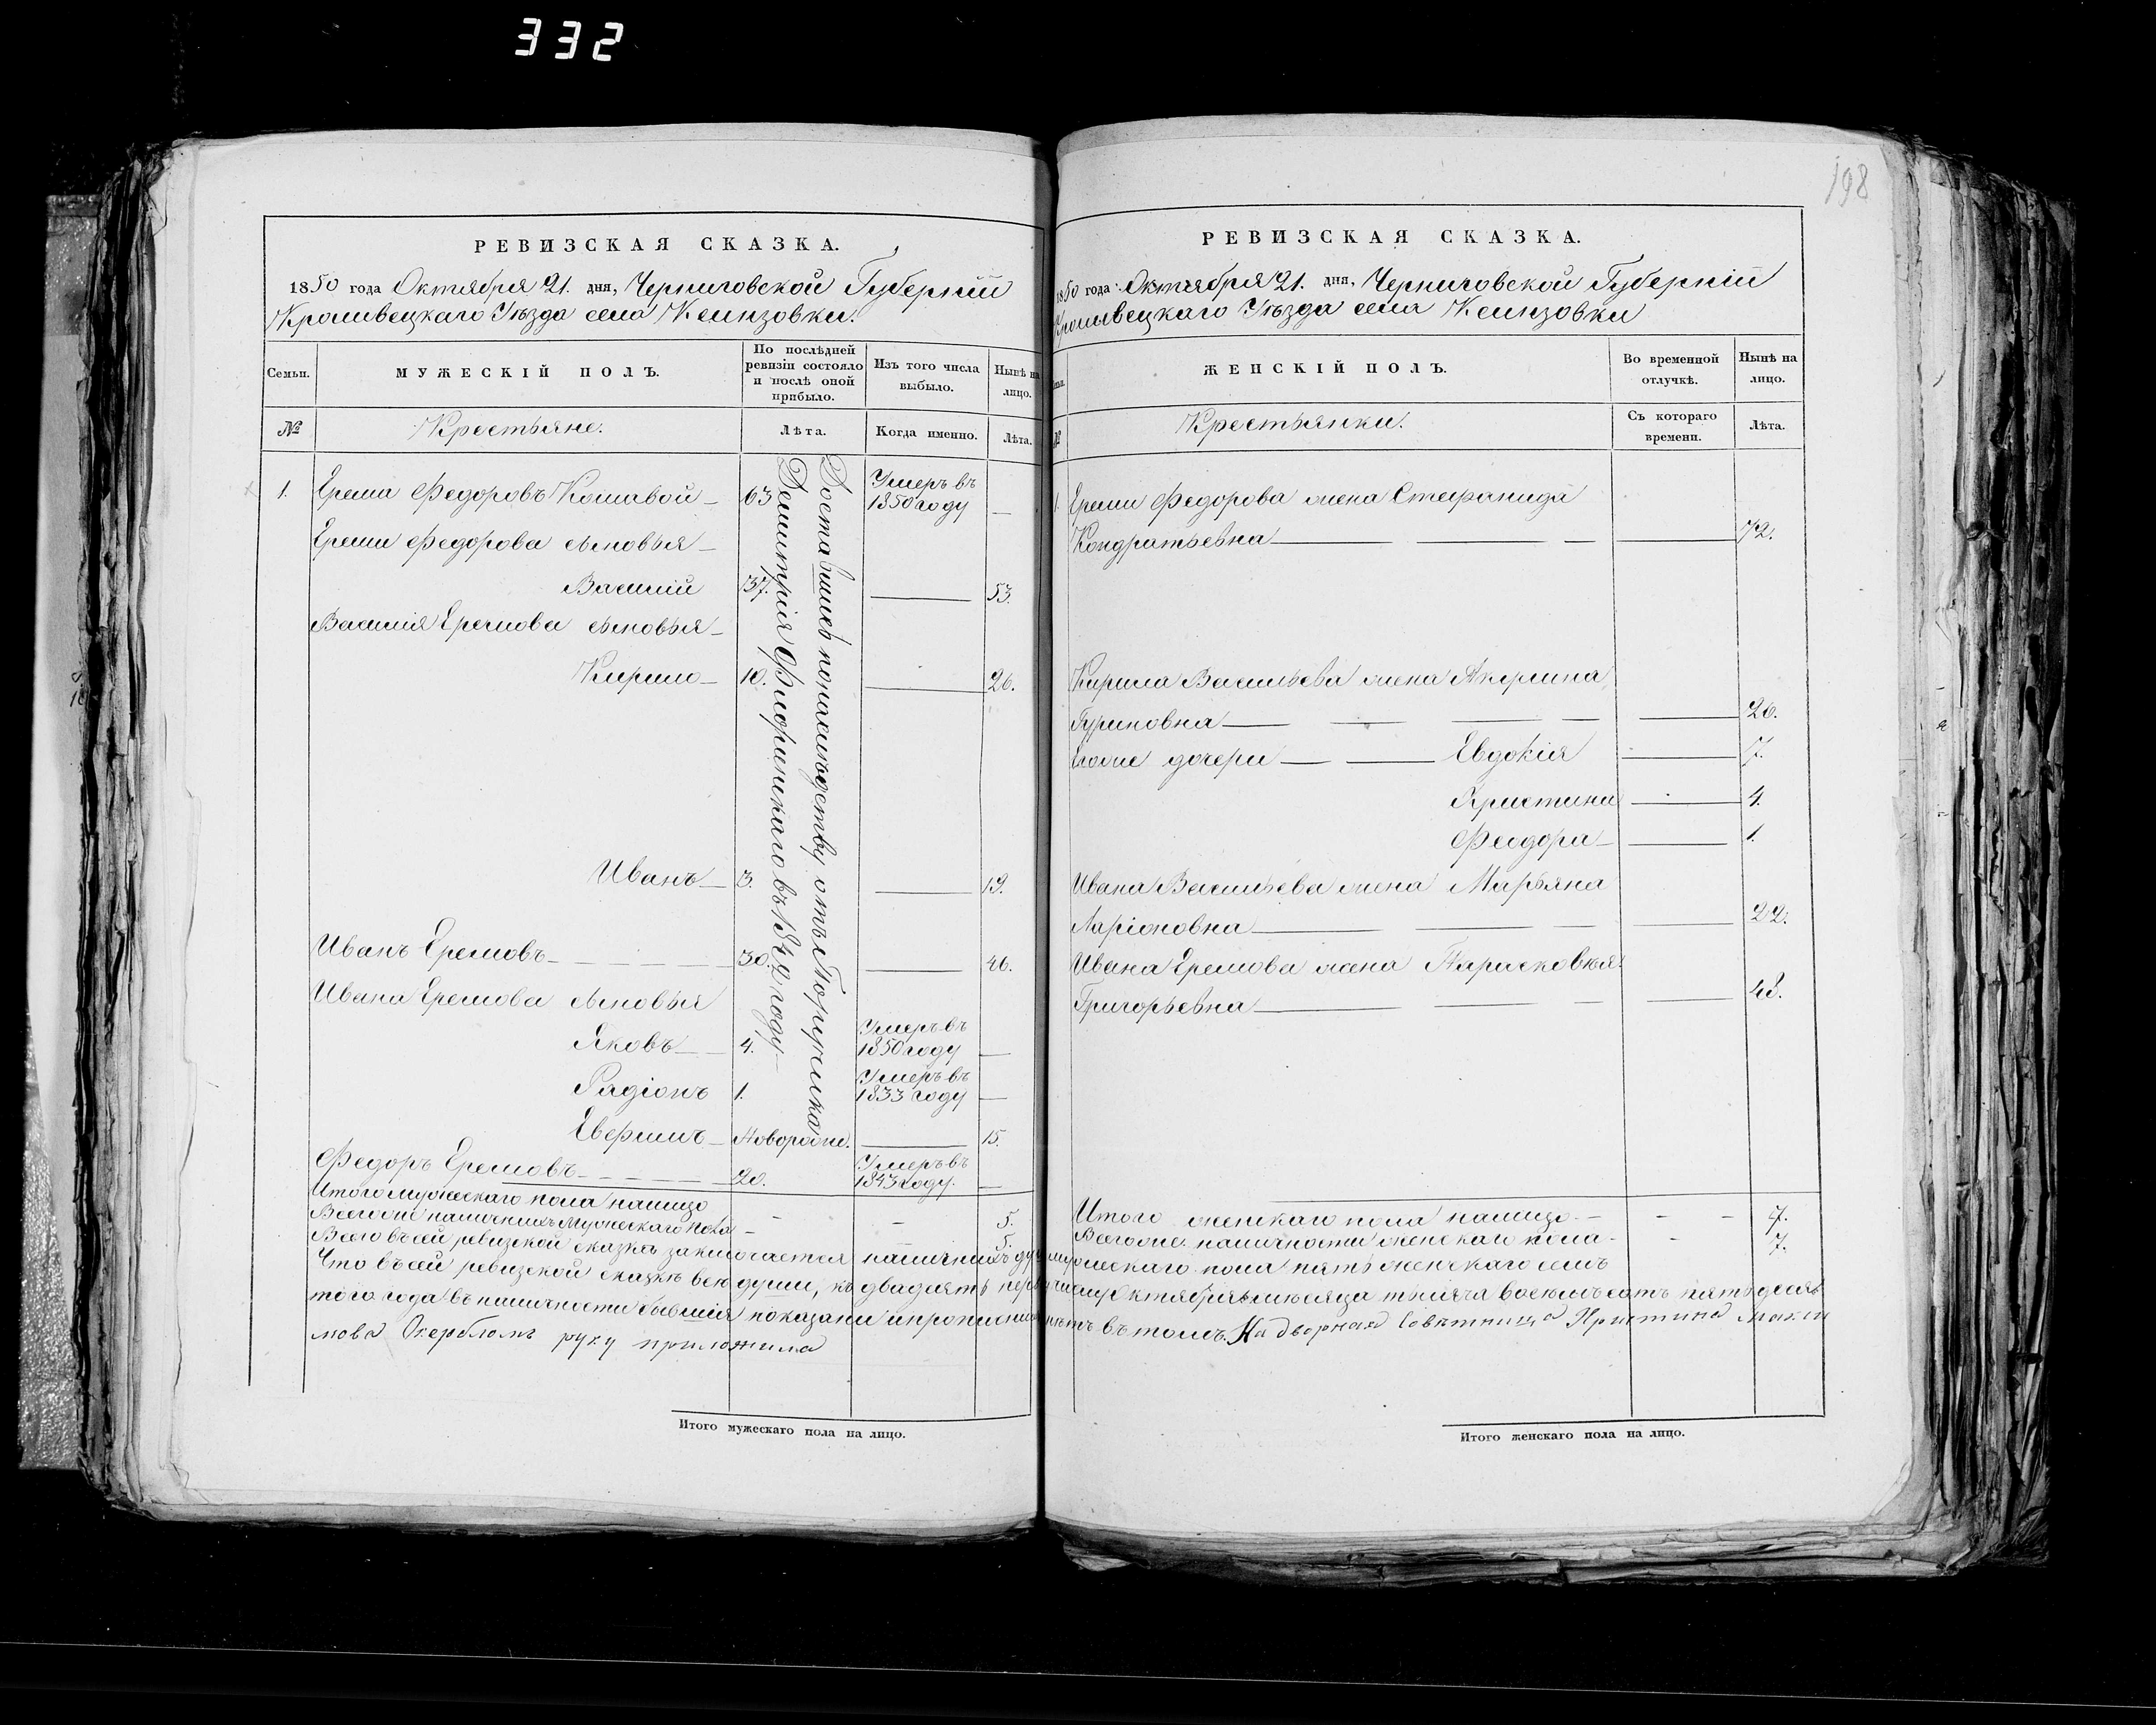 332
198
РЕВИЗСКАЯ СКАЗКА.
1850 года Октября 21. дня, Черниговской Губерніи
Кролевецкаго Уѣзда села
Семьи.
МУЖЕСКІЙ ПОЛЪ.
По послѣдней
ревизіи состояло
и послѣ оной
прибыло.
Изъ того числа
выбыло.
Нынѣ на
лицо.
№
Крестьяне.
Лѣта.
Когда именно.
Лѣта.
1. Ерема Федоровъ Кошавой 63 Умеръ въ
1850 году —
Еремы Федорова сыновья
Василій 37. — 53.
Василія Еремова сыновья
Кирило 10. — 26.
Иванъ 3. — 19.
Иванъ Еремовъ 30. — 46.
Ивана Еремова сыновья
Яковъ 4. Умеръ въ
1850 году —
Радіонъ 1. Умеръ въ
1833 году —
Новорожд. — 15.
Федоръ Еремовъ 20. Умеръ въ
1843 году. —
Доставшиеся по наследству отъ Поручика
Димитрія въ году
Итого мужескаго пола налицо 5.
Всего же наличныхъ мужескаго пола 5.
Всего въ сей ревизской сказкѣ заключается наличныхъ душъ
Что въ сей ревизской сказкѣ все души, къ двадцать первому
того года въ наличности бывшія показаны и прописныхъ
мова руку приложила
Итого мужескаго пола на лицо.
РЕВИЗСКАЯ СКАЗКА.
1850 года Октября 21. дня, Черниговской Губерніи
Кролевецкаго Уѣзда села
ЖЕНСКІЙ ПОЛЪ.
Во временной
отлучкѣ.
Нынѣ на
лицо.
№
Крестьянки.
Съ котораго
времени.
Лѣта.
1. Еремы Федорова жена Стефанида
Кондратьевна — 72.
Кирила Васильева жена Акулина
Гуриновна — 26.
Егоже дочери — Евдокія — 7.
Христина — 4.
Феодора — 1.
Ивана Васильева жена Марьяна
Ларіоновна — 22.
Ивана Еремова жена Парасковья
Григорьевна — 48.
Итого женскаго пола налицо — 7.
Всегоже наличности женскаго пола — 7.
мужескаго пола пять женскаго семь
Октября месяца тысяча восемьсотъ пятдесят
нѣтъ въ томъ. Надворная Совѣтница Христина Макси
Итого женскаго пола на лицо.